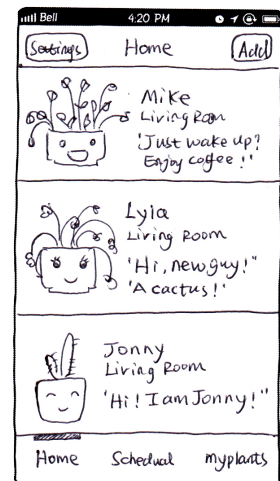 Bell 4:20 PM
Settings Home Add
Mike
Living Room
'Just wake up?
Enjoy coffee!'
Lyia
Living Room
'Hi, new guy!"
'A cactus!'
Jonny
Living Room
'Hi! I am Jonny!"
Home Schedual myplants